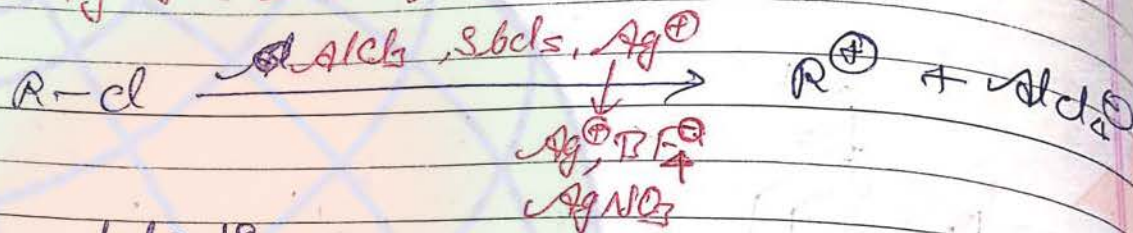 AlCl₃, SbCl₅, Ag⊕
R-Cl ⟶ R⊕ + AlCl₄⊖
Ag⊕, BF₄⊖
AgNO₃